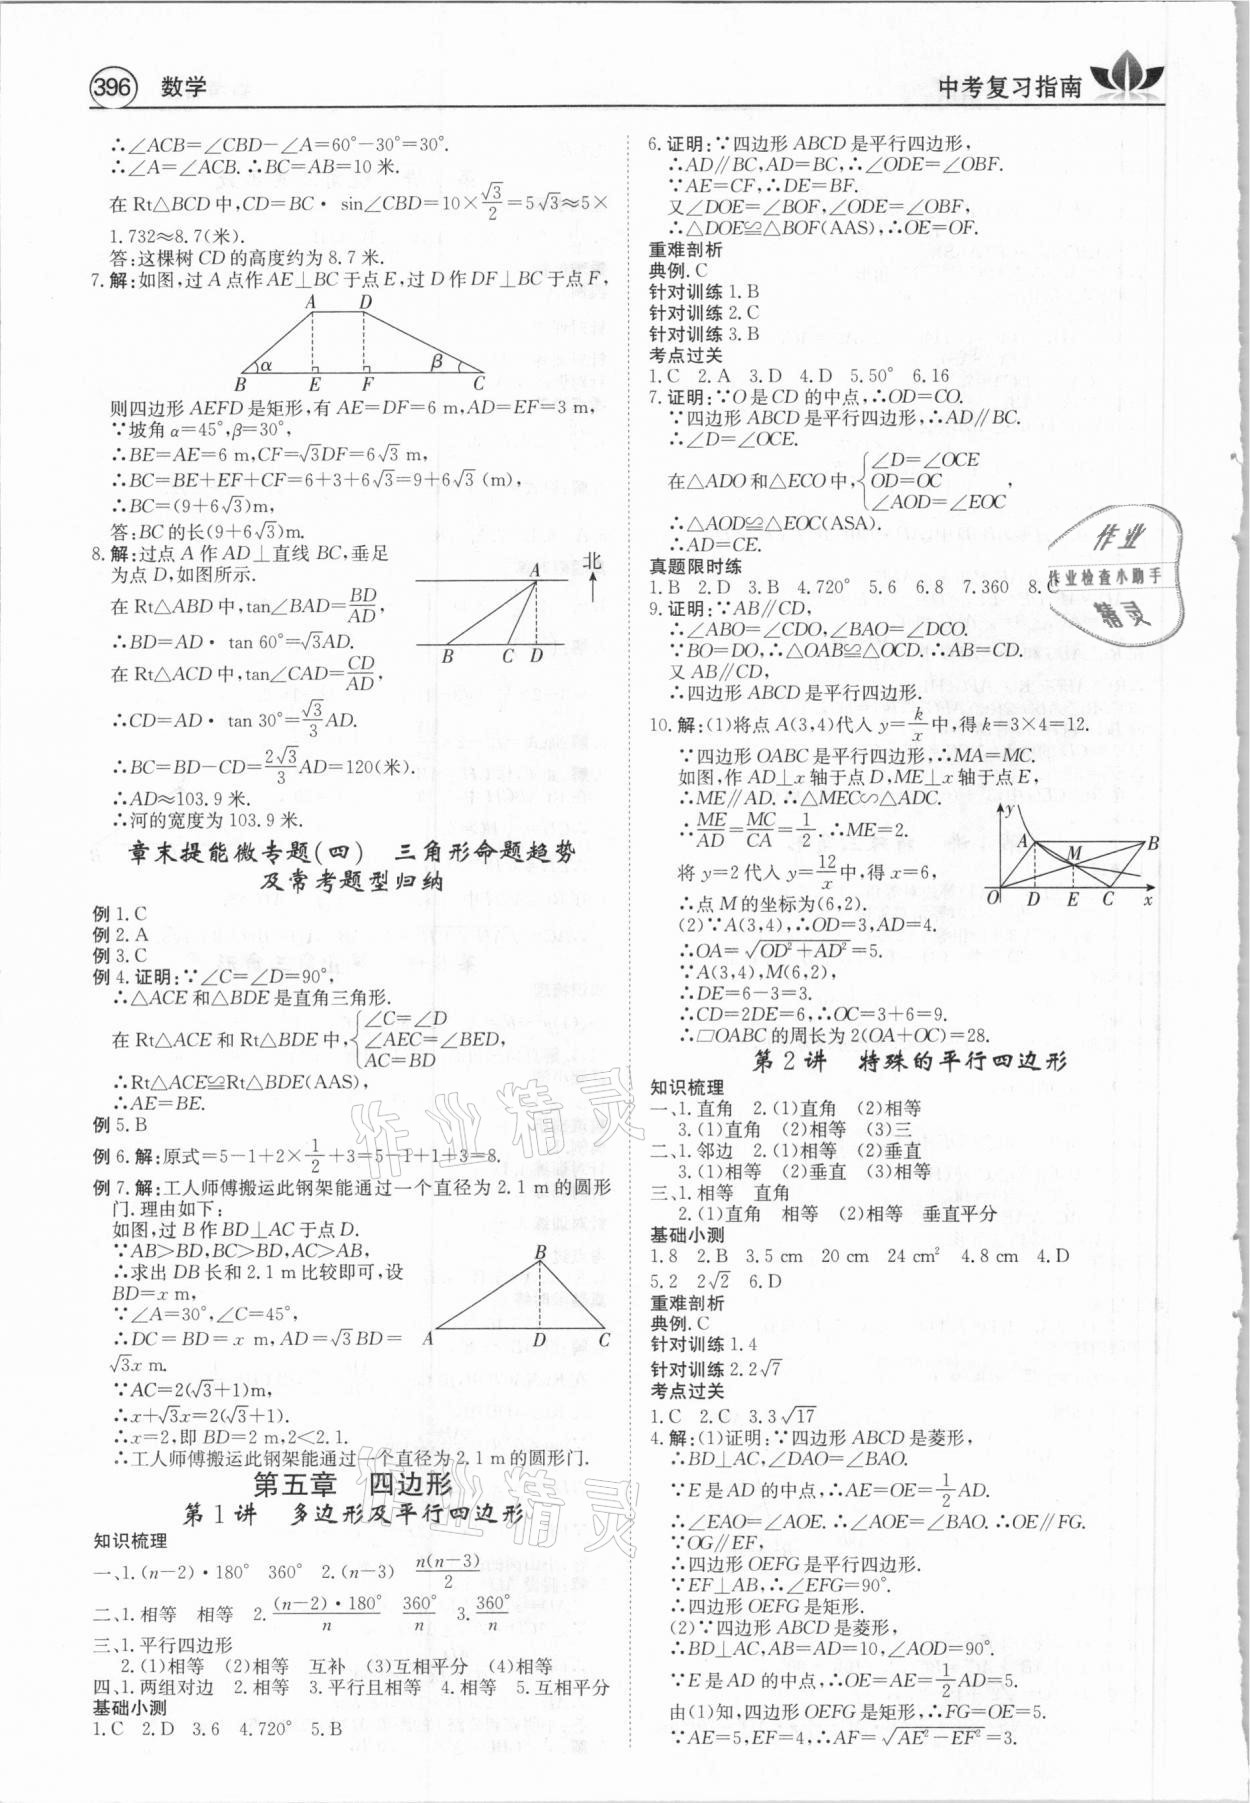 396 数学 中考复习指南
∴∠ACB=∠CBD-∠A=60°-30°=30°.
∴∠A=∠ACB.∴BC=AB=10 米.
在 Rt△BCD 中,CD=BC·sin∠CBD=10×√3/2=5√3≈5×
1.732≈8.7(米).
答:这棵树 CD 的高度约为 8.7 米.
7.解:如图,过 A 点作 AE⊥BC 于点 E,过 D 作 DF⊥BC 于点 F,
A D
α β
B E F C
则四边形 AEFD 是矩形,有 AE=DF=6 m,AD=EF=3 m,
∵坡角 α=45°,β=30°,
∴BE=AE=6 m,CF=√3DF=6√3 m,
∴BC=BE+EF+CF=6+3+6√3=9+6√3 (m),
∴BC=(9+6√3)m,
答:BC 的长(9+6√3)m.
8.解:过点 A 作 AD⊥直线 BC,垂足
为点 D,如图所示.
在 Rt△ABD 中,tan∠BAD=BD/AD,
∴BD=AD·tan 60°=√3AD.
在 Rt△ACD 中,tan∠CAD=CD/AD,
∴CD=AD·tan 30°=√3/3 AD.
北
A
B C D
∴BC=BD-CD=2√3/3 AD=120(米).
∴AD≈103.9 米.
∴河的宽度为 103.9 米.
章末提能微专题(四) 三角形命题趋势
及常考题型归纳
例 1.C
例 2.A
例 3.C
例 4.证明:∵∠C=∠D=90°,
∴△ACE 和△BDE 是直角三角形.
在 Rt△ACE 和 Rt△BDE 中,{∠C=∠D
∠AEC=∠BED,
AC=BD
∴Rt△ACE≌Rt△BDE(AAS),
∴AE=BE.
例 5.B
例 6.解:原式=5-1+2×1/2+3=5-1+1+3=8.
例 7.解:工人师傅搬运此钢架能通过一个直径为 2.1 m 的圆形
门.理由如下:
如图,过 B 作 BD⊥AC 于点 D.
∵AB>BD,BC>BD,AC>AB,
∴求出 DB 长和 2.1 m 比较即可,设
BD=x m,
∵∠A=30°,∠C=45°,
∴DC=BD=x m,AD=√3BD=
√3x m.
B
A D C
∵AC=2(√3+1)m,
∴x+√3x=2(√3+1).
∴x=2,即 BD=2 m,2<2.1.
∴工人师傅搬运此钢架能通过一个直径为 2.1 m 的圆形门.
第五章 四边形
第 1 讲 多边形及平行四边形
知识梳理
一、1.(n-2)·180° 360° 2.(n-3) n(n-3)/2
二、1.相等 相等 2.(n-2)·180°/n 360°/n 3.360°/n
三、1.平行四边形
2.(1)相等 (2)相等 互补 (3)互相平分 (4)相等
四、1.两组对边 2.相等 3.平行且相等 4.相等 5.互相平分
基础小测
1.C 2.D 3.6 4.720° 5.B
6.证明:∵四边形 ABCD 是平行四边形,
∴AD∥BC,AD=BC,∴∠ODE=∠OBF.
∵AE=CF,∴DE=BF.
又∠DOE=∠BOF,∠ODE=∠OBF,
∴△DOE≌△BOF(AAS),∴OE=OF.
重难剖析
典例.C
针对训练 1.B
针对训练 2.C
针对训练 3.B
考点过关
1.C 2.A 3.D 4.D 5.50° 6.16
7.证明:∵O 是 CD 的中点,∴OD=CO.
∵四边形 ABCD 是平行四边形,∴AD∥BC.
∴∠D=∠OCE.
在△ADO 和△ECO 中,{∠D=∠OCE
OD=OC ,
∠AOD=∠EOC
∴△AOD≌△EOC(ASA).
∴AD=CE.
真题限时练
1.B 2.D 3.B 4.720° 5.6 6.8 7.360 8.C
9.证明:∵AB∥CD,
∴∠ABO=∠CDO,∠BAO=∠DCO.
∵BO=DO,∴△OAB≌△OCD.∴AB=CD.
又 AB∥CD,
∴四边形 ABCD 是平行四边形.
作业
作业检查小助手
精灵
10.解:(1)将点 A(3,4)代入 y=k/x 中,得 k=3×4=12.
∵四边形 OABC 是平行四边形,∴MA=MC.
如图,作 AD⊥x 轴于点 D,ME⊥x 轴于点 E,
∴ME∥AD.∴△MEC∽△ADC.
∴ME/AD=MC/CA=1/2.∴ME=2.
将 y=2 代入 y=12/x 中,得 x=6,
∴点 M 的坐标为(6,2).
y
A B
M
O D E C x
(2)∵A(3,4),∴OD=3,AD=4.
∴OA=√(OD²+AD²)=5.
∵A(3,4),M(6,2),
∴DE=6-3=3.
∴CD=2DE=6,∴OC=3+6=9.
∴□OABC 的周长为 2(OA+OC)=28.
第 2 讲 特殊的平行四边形
知识梳理
一、1.直角 2.(1)直角 (2)相等
3.(1)直角 (2)相等 (3)三
二、1.邻边 2.(1)相等 (2)垂直
3.(1)相等 (2)垂直 (3)相等
三、1.相等 直角
2.(1)直角 相等 (2)相等 垂直平分
基础小测
1.8 2.B 3.5 cm 20 cm 24 cm² 4.8 cm 4.D
5.2 2√2 6.D
重难剖析
典例.C
针对训练 1.4
针对训练 2.2√7
考点过关
1.C 2.C 3.3√17
4.解:(1)证明:∵四边形 ABCD 是菱形,
∴BD⊥AC,∠DAO=∠BAO.
∵E 是 AD 的中点,∴AE=OE=1/2 AD.
∴∠EAO=∠AOE.∴∠AOE=∠BAO.∴OE∥FG.
∵OG∥EF,
∴四边形 OEFG 是平行四边形.
∵EF⊥AB,∴∠EFG=90°.
∴四边形 OEFG 是矩形.
(2)∵四边形 ABCD 是菱形,
∴BD⊥AC,AB=AD=10,∠AOD=90°.
∵E 是 AD 的中点,∴OE=AE=1/2 AD=5.
由(1)知,四边形 OEFG 是矩形,∴FG=OE=5.
∵AE=5,EF=4,∴AF=√(AE²-EF²)=3.
作业精灵
作业精灵